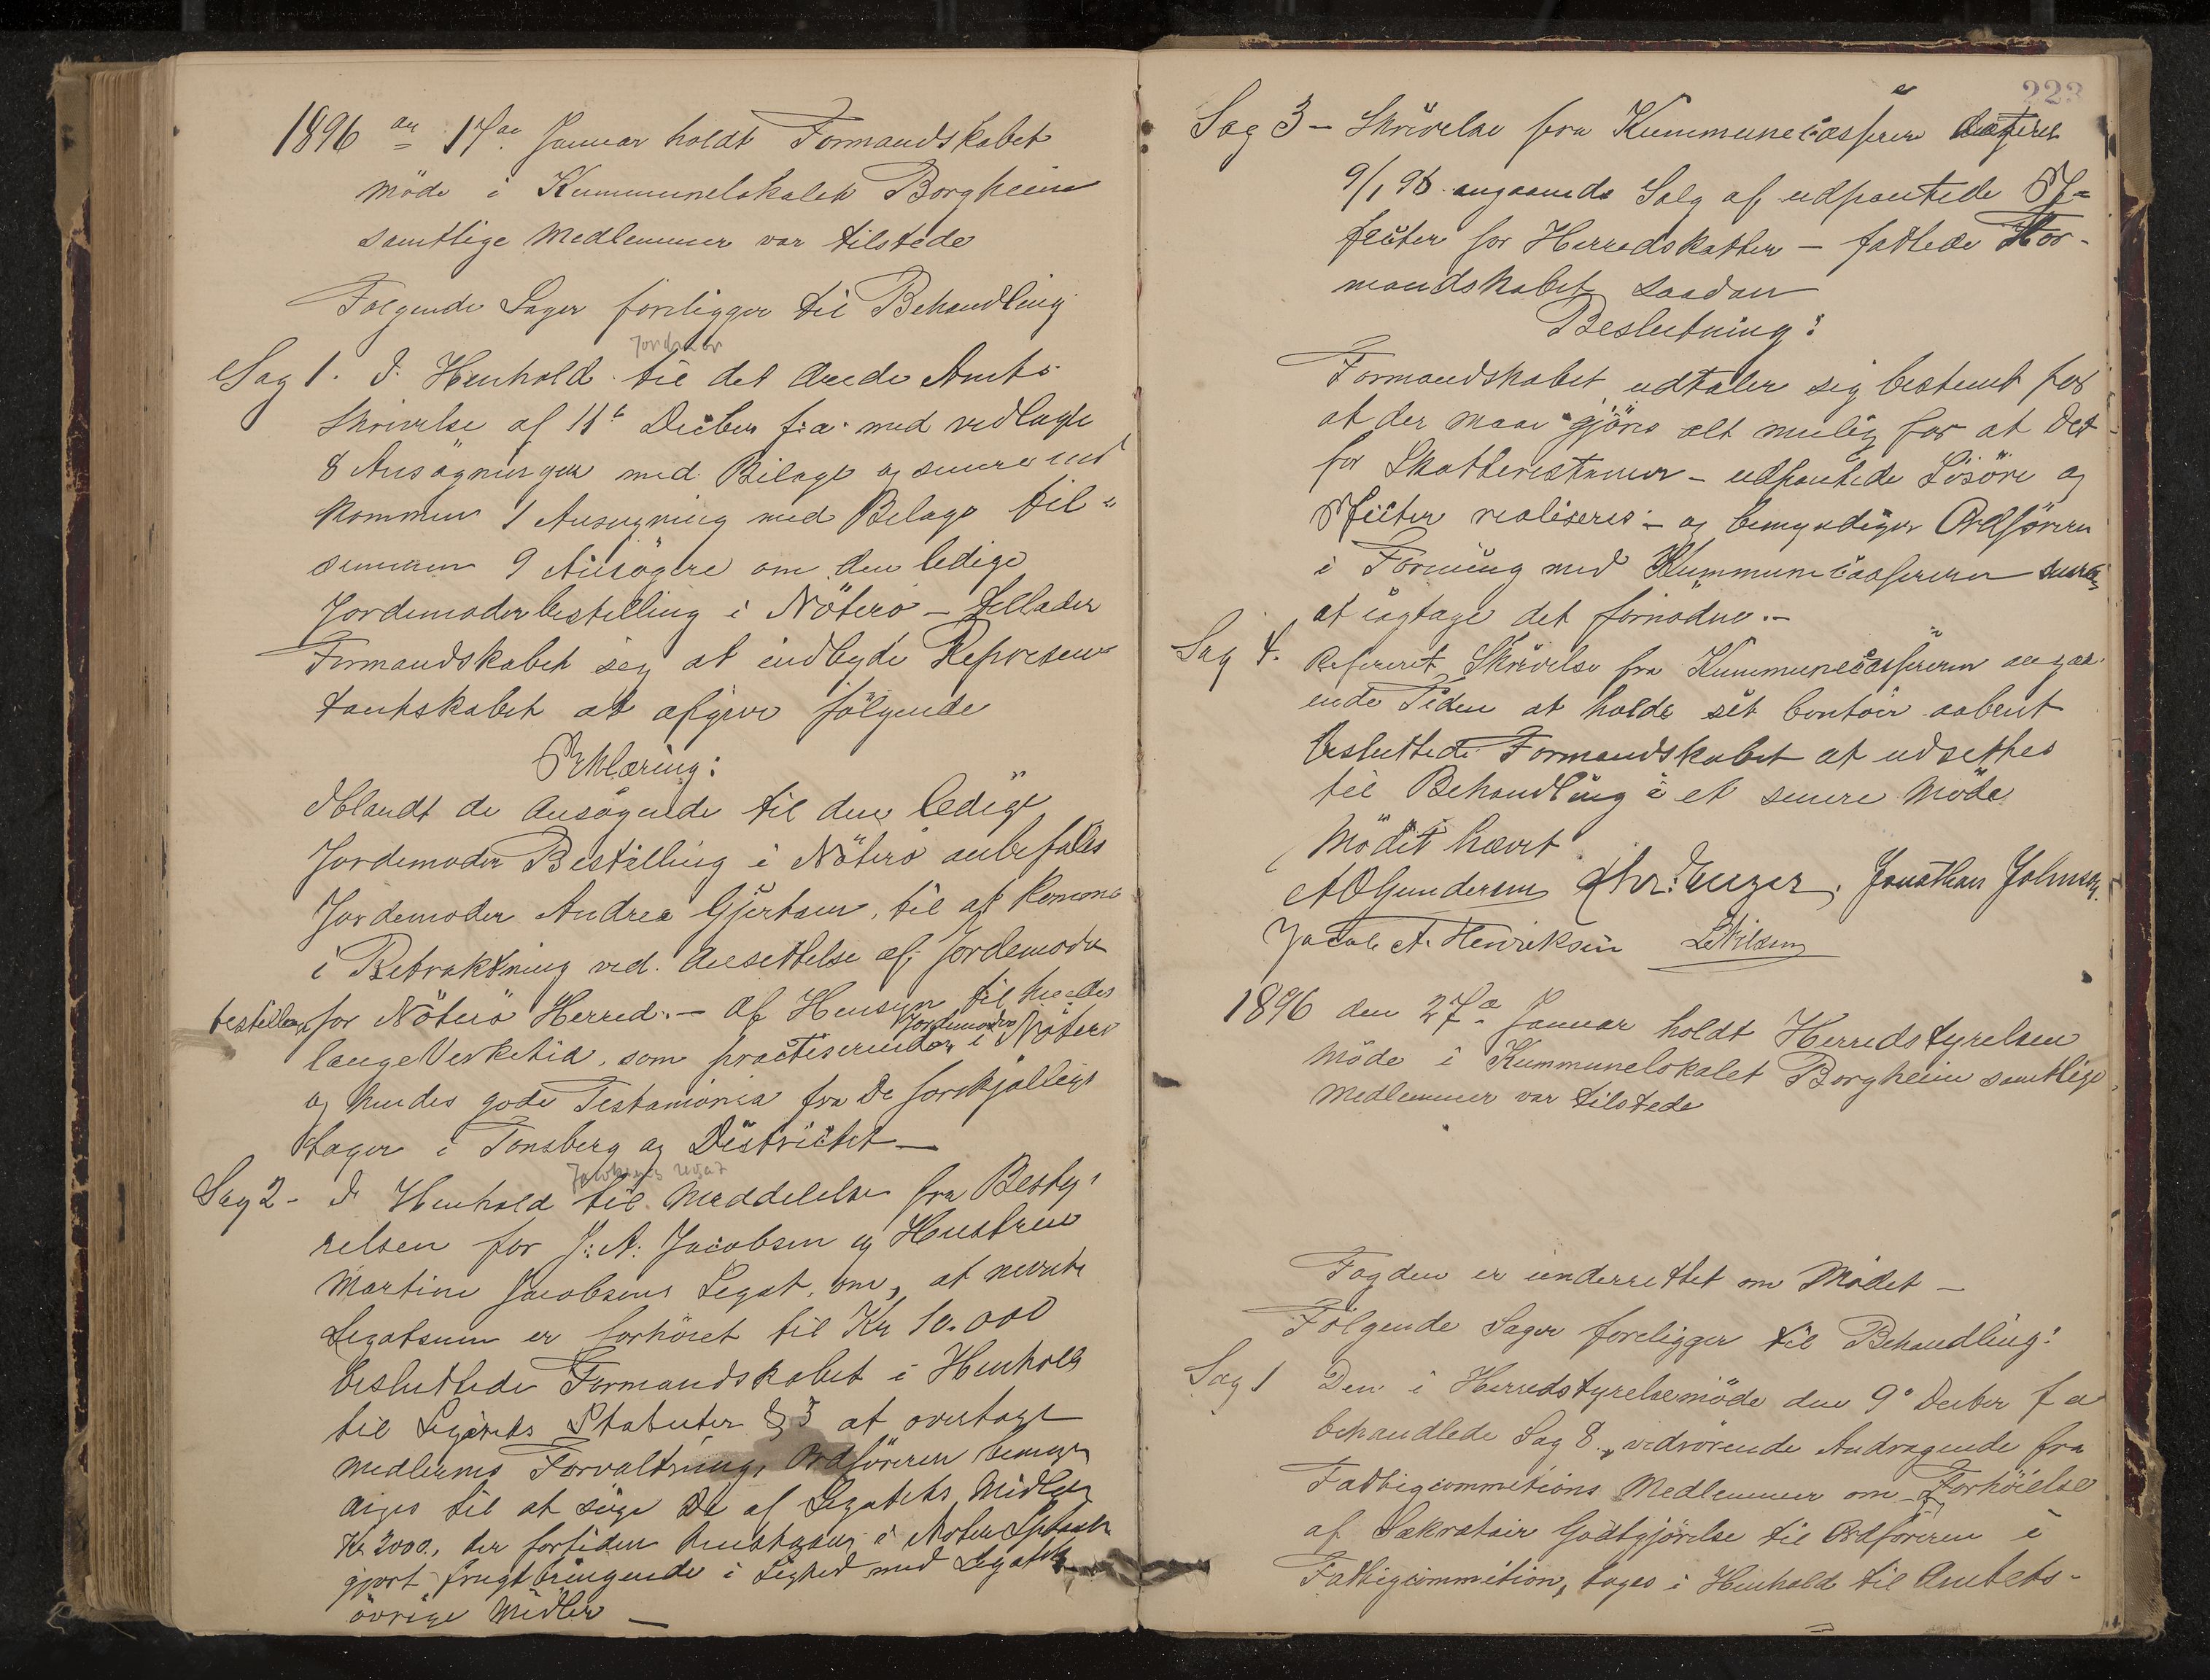 1896 den 17de Januar holdt Formandskabet
Möde i Kummunelokalet Borgheim
samtlige Medlemmer var tilstede
Følgende Sager foreligger til Behandling
Jordmor
Sag 1. I Henhold til det Ærede Amts
Skrivelse af 11te Decber f:a: med vedlagte
8 Ansøgninger med Bilage og senere ind
kommen 1 Ansøgning med Bilage til=
sammen 9 Ansögere om den ledige
Jordemoderbestilling i Nöterö – tillader
Formandskabet sig at indbyde Represen
tantskabet at afgive fölgende
Erklæring:
Iblandt de Ansøgende til den ledige
Jordemoder Bestilling i Nöterö anbefales
Jordemoder Andrea Gjertsen, til at komme
i Betraktning ved Ansettelse af Jordemoder
bestillen for Nöterö Herred. – Af Hensyn til hendes
lange Virketid, som practiserende Jordemoder i Nöterö
og hendes gode Testamonia fra De forskjellige
Læger i Tønsberg og Districtet –
Jacobsens legat
Sag 2 – I Henhold til Meddelelse fra Besty-
relsen for J: A: Jacobsen og Hustru
Martine Jacobsens Legat, om, at nevnte
Legatsum er forhöiet til Kr 10.000
besluttede Formandskabet i Henhold
til Legatets Statuter § 3 at overtage
Midlernes Forvaltning, Ordföreren bemyn
diges til at söge De af Legatets Midler
Kr 2000, der fortiden i Nøterö Spbank
gjort frugtbringende i Lighed med Legatets
övrige Midler –
223
Sag 3 – Skrivelse fra Kummunecasserer dateret
9/1 96 angaaende Salg af udpantede Ef=
fecter for Herredskatter – fattede For-
mandskabet saadan
Beslutning:
Formandskabet udtaler sig bestemt for
at der maa gjöres alt mulig for at det
for Skatterestancer – udpantede Lösöre og
Effecter realiseres – og bemyndiger Ordföreren
i Forening med Kummunecassereren
at iagtage det fornødne. –
Sag 4. Refereret Skrivelse fra Kummunecassereren angaa-
ende Tiden at holde sit Contoir aabent
besluttede Formandskabet at udsettes
til Behandling i et senere Möde
Mödet hævet
A O Gundersen Chr: Unger. Jonathan Johnsen,
Jacob A. Henriksen L Nilsen
1896 den 27de Januar holdt Herredstyrelsen
Möde i Kummunelokalet Borgheim samtlige
Medlemmer var tilstede
Fogden er underrettet om Mødet –
Følgende Sager foreligger til Behandling:
Sag 1 Den i Herredstyrelsemöde den 9de Decber f a
behandlede Sag 8, vedrörende Andragende fra
Fattigcommitions Medlemmer om Forhöielse
af Sekretair Godtgjörelse til Ordföreren i
Fattigcommition, tages i Henhold til Amtets-